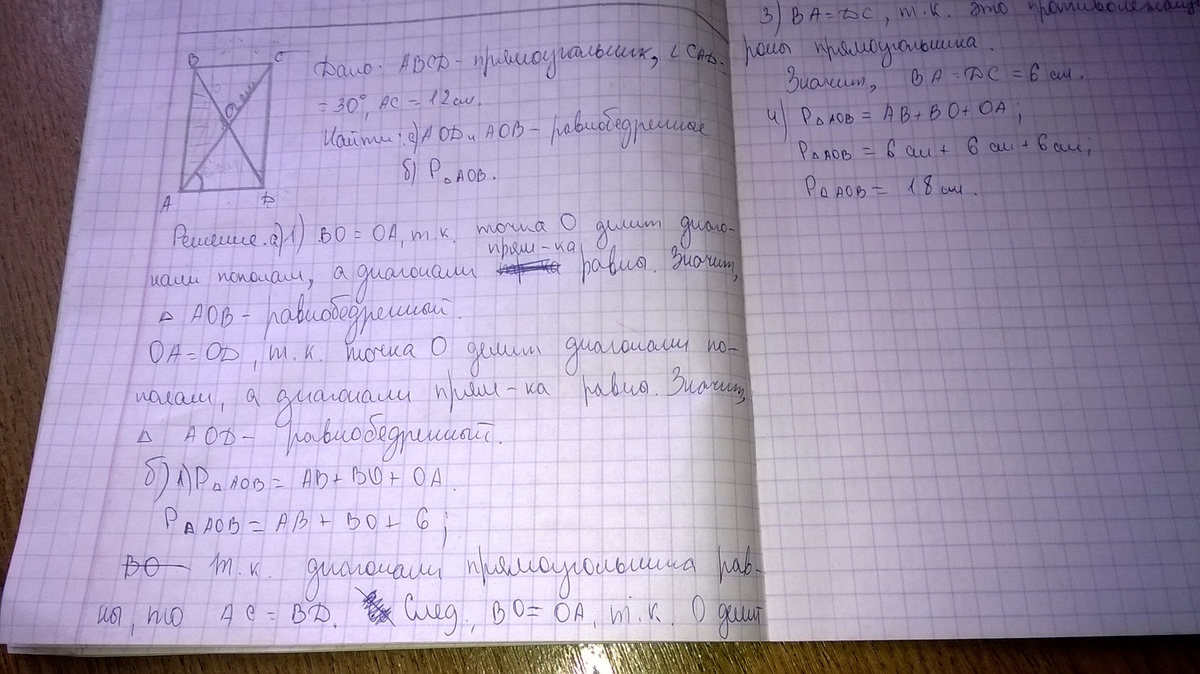 B C
O
A D
Дано: ABCD - прямоугольник, ∠CAD=
= 30°, AC = 12 см.
Найти: а) AOD и AOB - равнобедренные
б) P△AOB.
Решение. а) 1) BO = OA, т.к. точка O делит диаго-
нали пополам, а диагонали прям-ка равны. Значит,
△ AOB - равнобедренный.
OA = OD, т.к. точка O делит диагонали по-
полам, а диагонали прям-ка равны. Значит,
△ AOD - равнобедренный.
б) 1) P△AOB = AB + BO + OA.
P△AOB = AB + BO + 6;
BO т.к. диагонали прямоугольника рав-
ны, то AC = BD. След., BO = OA, т.к. O делит
3) BA = DC, т.к. это противолежащ
роны прямоугольника.
Значит, BA = DC = 6 см.
4) P△AOB = AB + BO + OA;
P△AOB = 6 см + 6 см + 6 см;
P△AOB = 18 см.